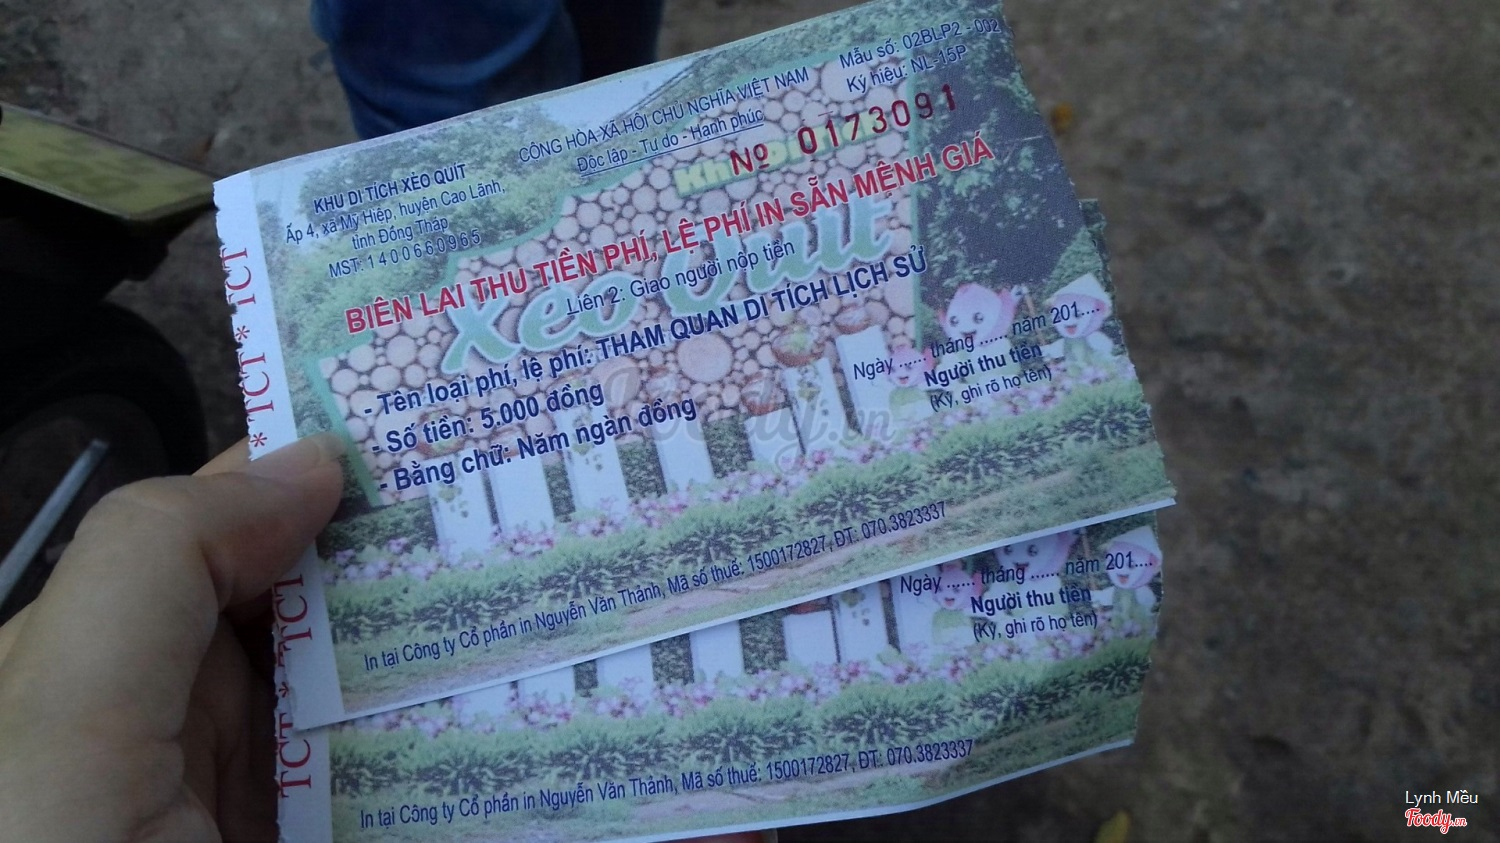 CÔNG HÒA XÃ HỘI CHỦ NGHĨA VIỆT NAM
Độc lập - Tự do - Hạnh phúc
Mẫu số: 02BLP2 - 002
Ký hiệu: NL-15P
Nº 0173091
KHU DI TÍCH XẺO QUÍT
Ấp 4, xã Mỹ Hiệp, huyện Cao Lãnh,
tỉnh Đồng Tháp
MST: 1400660965
BIÊN LAI THU TIỀN PHÍ, LỆ PHÍ IN SẴN MỆNH GIÁ
Liên 2: Giao người nộp tiền
Xẻo Quít
- Tên loại phí, lệ phí: THAM QUAN DI TÍCH LỊCH SỬ
- Số tiền: 5.000 đồng
- Bằng chữ: Năm ngàn đồng
Ngày ...... tháng ...... năm 201....
Người thu tiền
(Ký, ghi rõ họ tên)
In tại Công ty Cổ phần in Nguyễn Văn Thảnh, Mã số thuế: 1500172827, ĐT: 070.3823337
TCT * TCT * TCT
Ngày ...... tháng ...... năm 201....
Người thu tiền
(Ký, ghi rõ họ tên)
In tại Công ty Cổ phần in Nguyễn Văn Thảnh, Mã số thuế: 1500172827, ĐT: 070.3823337
Foody.vn
Lynh Mều
Foody.vn